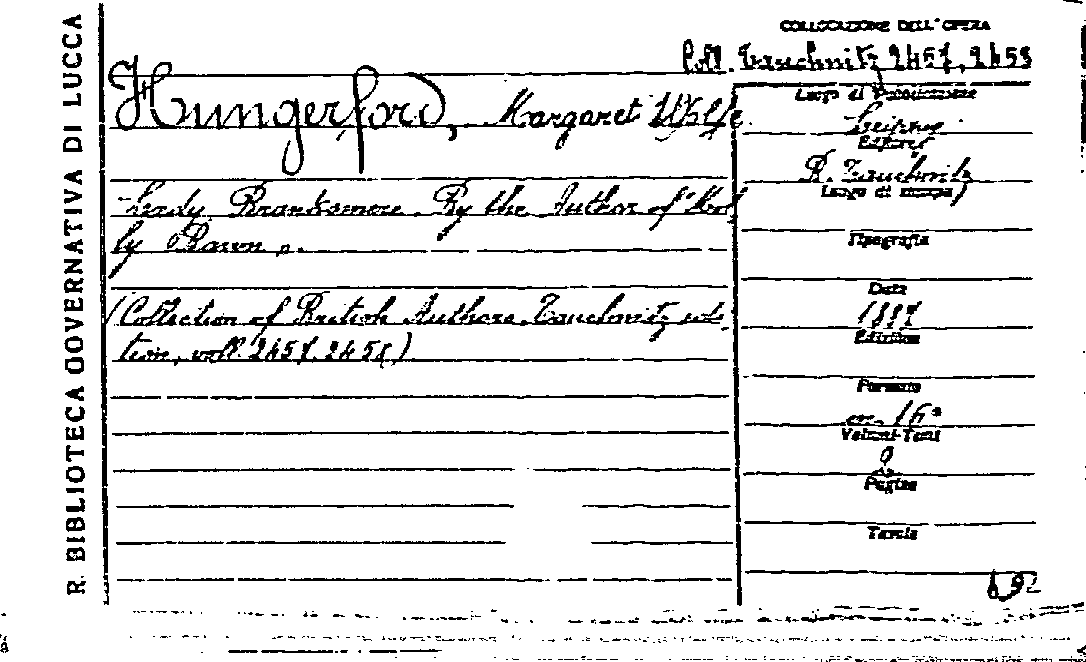 R. BIBLIOTECA GOVERNATIVA DI LUCCA
COLLOCAZIONE DELL'OPERA
Coll. Tauchnitz 2457, 2458
Hungerford, Margaret Wolfe
Lady Branksmere. By the Author of "Mol
ly Bawn".
(Collection of British Authors. Tauchnitz edi-
tion, voll. 2457. 2458)
Luogo di Pubblicazione
Leipzig
Editore
B. Tauchnitz
Luogo di stampa
Tipografia
Data
1887
Edizione
Formato
in-16°
Volumi-Tomi
Pagine
Tavole